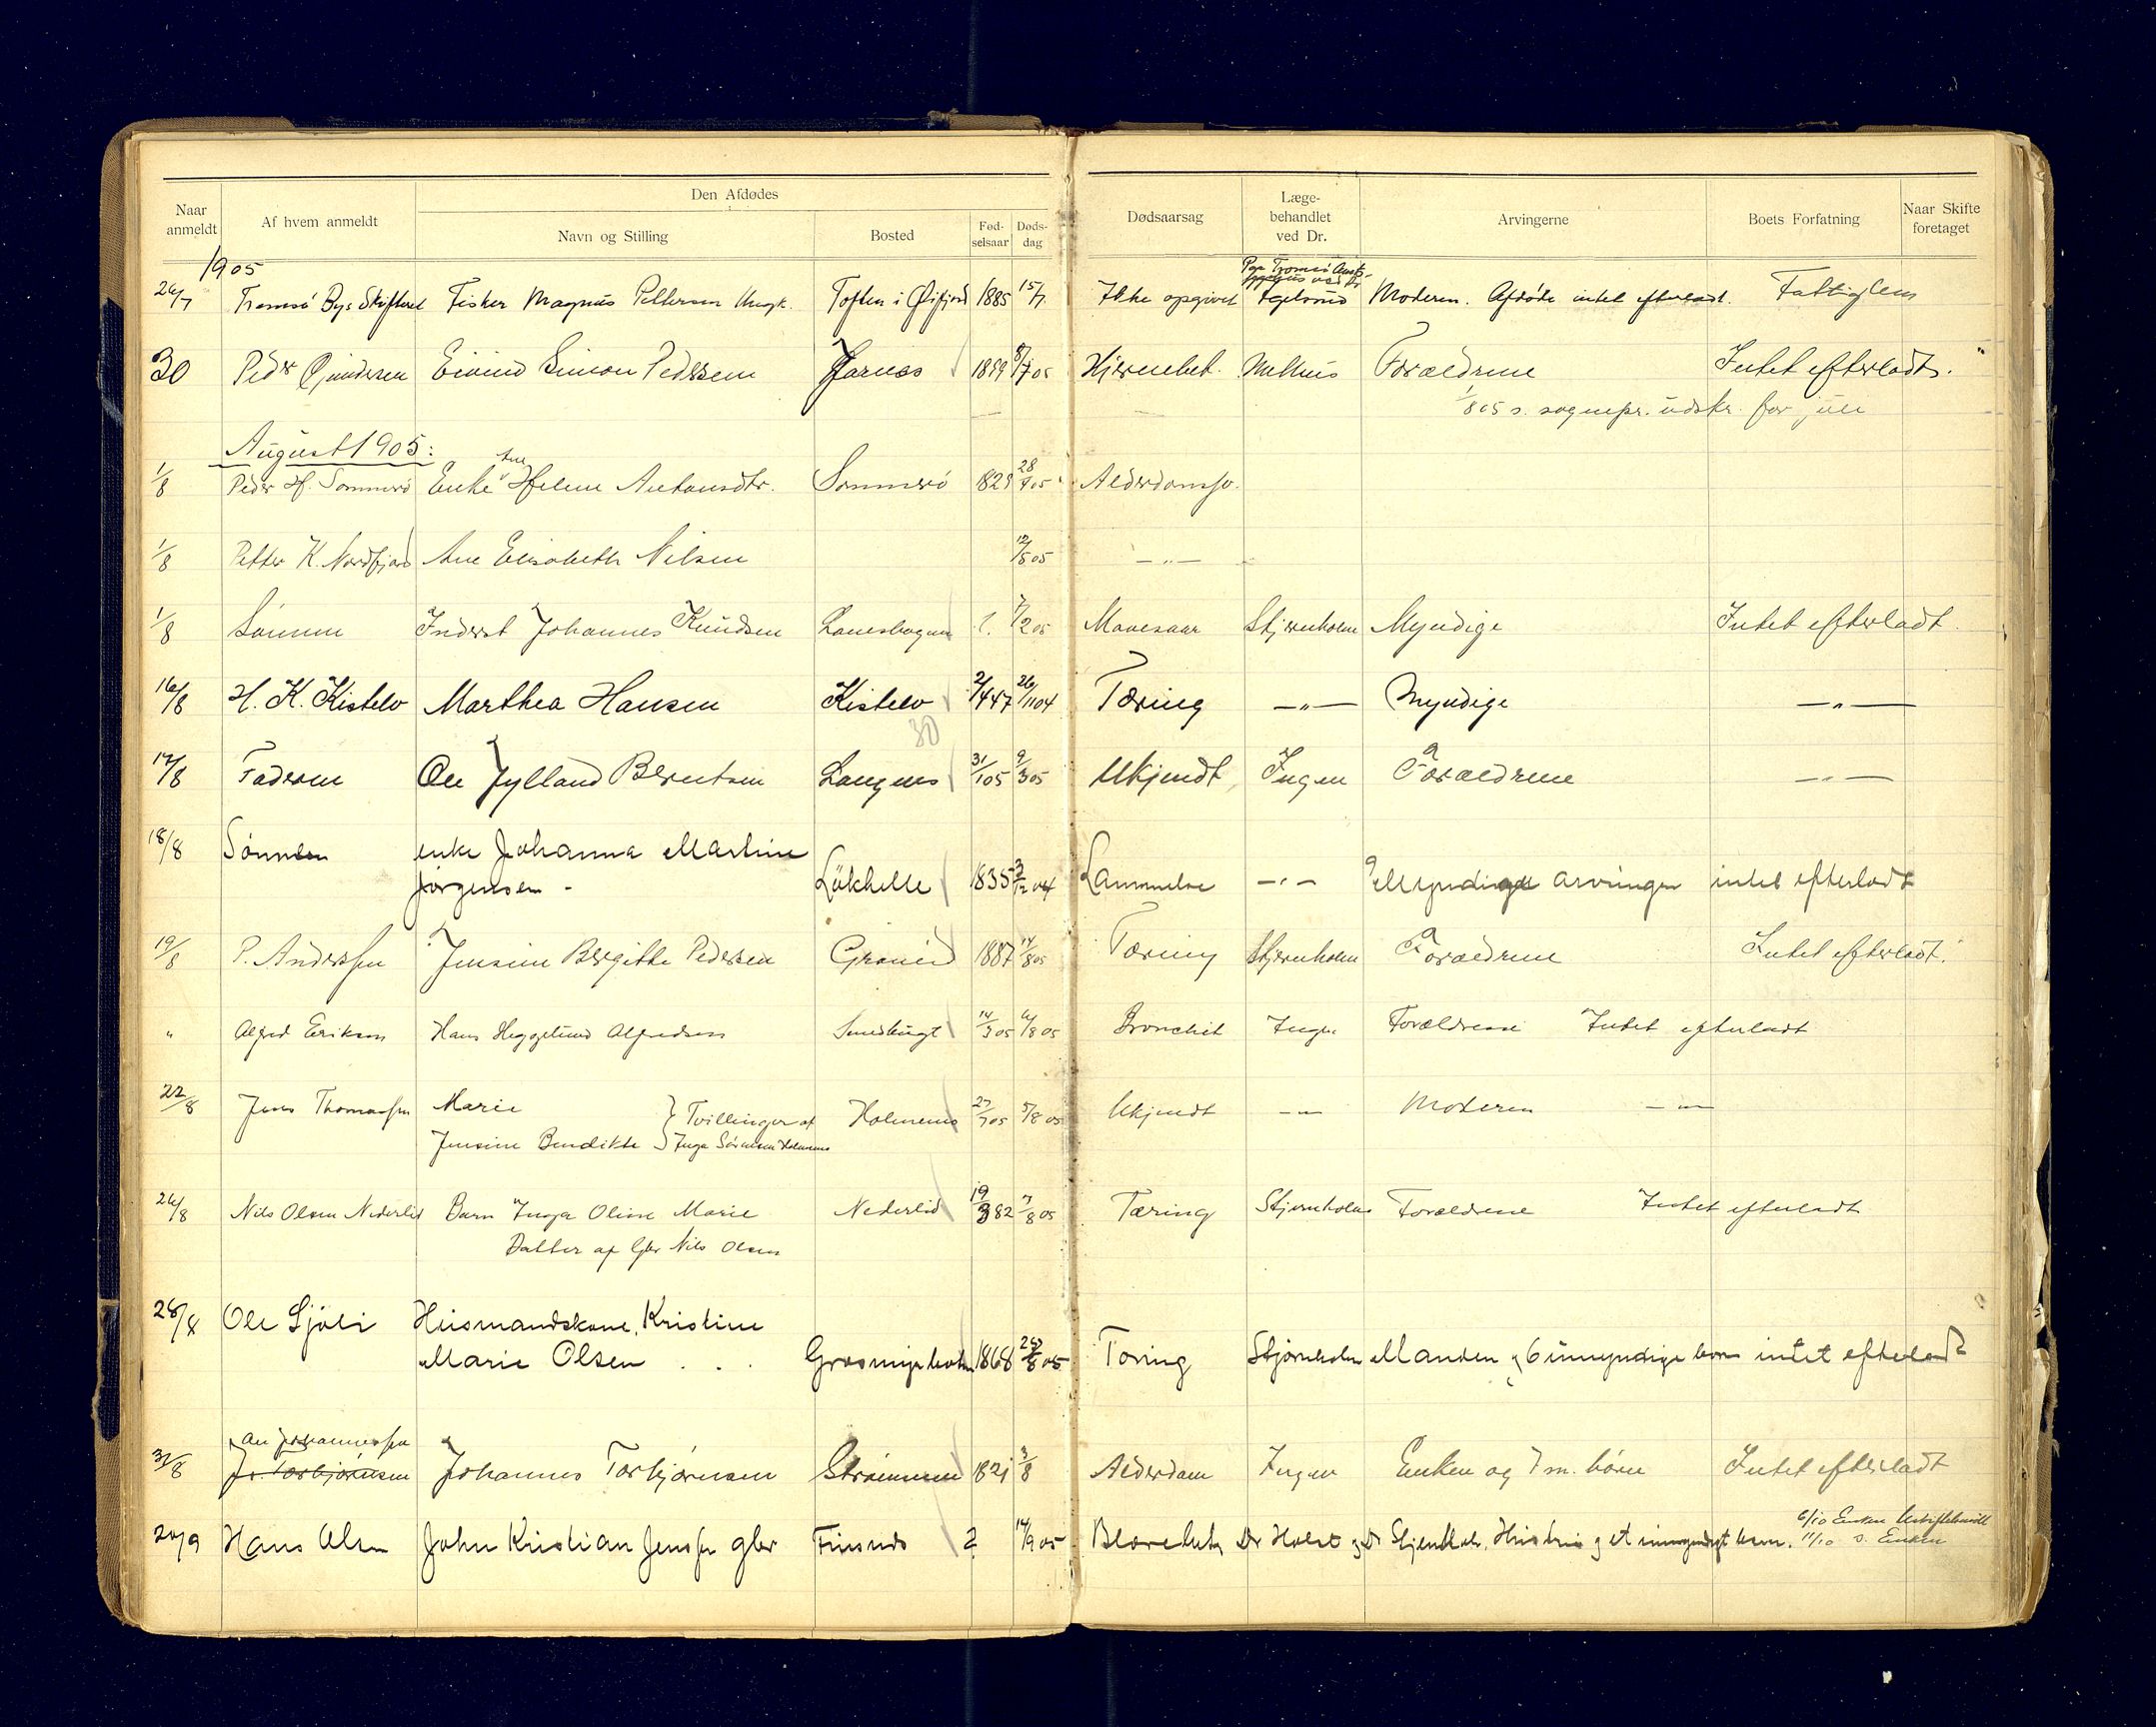 Naar anmeldt Af hvem anmeldt Den Afdødes Navn og Stilling Bosted Fød-selsaar Døds-dag Dødsaarsag Læge-behandlet ved Dr. Arvingerne Boets Forfatning Naar Skifte foretaget
1905
26/7 Tromsø Bys Skifteret Fisker Magnus Pettersen Ungk. Toften i 1885 15/7 Ikke opgivet Moderen. Afdøde intet efterladt. Fattiglem
30 Peder Eivind Simon Pedersen 1889 8/7 05 Hjernebet. Forældrene Intet efterladt.
1/8 05 s. sognepr. udskr. for juli
August 1905:
1/8 Peder H. Sommerø Enke Ane Helene Antonsdtr. Sommerø 1829 28/7 05 Alderdomssv.
1/8 Petter K. Nordfjord Ane Elisabeth Nilsen 12/5 05 — " —
1/8 Sønnen Inderst Johannes Knudsen ?. 7/2 05 Mavesaar Stjernholm Myndige Intet efterladt.
16/8 H. K. Kistelv Marthea Hansen Kistelv 2/4 47 26/11 04 Tæring — " — Myndige — " —
30
17/8 Faderen Ole Jylland Berntsen Langnes 31/1 05 9/3 05 Ukjendt Ingen Forældrene — " —
18/8 Sønnen enke Johanna Martine
Jørgensen - Lökhelle 1835 04 Lammelse — " — Myndige arvinger intet efterladt
19/8 P. Anderssen Jensine Bergitte Pedersen 1887 14/8 05 Tæring Stjernholm Forældrene Intet efterladt.
" Alfred Eriksen Hans Heggelund Alfredsen Smedbugt 14/3 05 6/8 05 Bronchit Ingen Forældrene Intet efterladt
22/8 Jens Thomassen Marie } Tvillinger af Holmenes 27/7 05 5/8 05 Ukjendt — " — Moderen — " —
Jensine Bendikte } Inga Sørensen Holmenes
26/8 Nils Olsen Nederlid Barn Inga Oline Marie Nederlid 19/3 82 7/8 05 Tæring Stjernholm Forældrene Intet efterladt
Datter af Gbr Nils Olsen
28/8 Ole Sjöli Husmandskone, Kristine
Marie Olsen . . . 1868 8 05 Tæring Stjernholm Manden og 6 umyndige børn intet efterladt
An Johannessen
31/8 Jo. Torbjørnsen Johannes Torbjørnsen Strømmen 1821 3/8 Alderdom Ingen Enken og 7 m. børn Intet efterladt
20/9 Hans Olsen John Kristian Jenssen gbr Finsnes ? 14/9 05 Dr Holst og Dr Stjernholm. Hustru og et umyndigt barn. 6/10 Enken Uskiftebevill
11/10 s. Enken